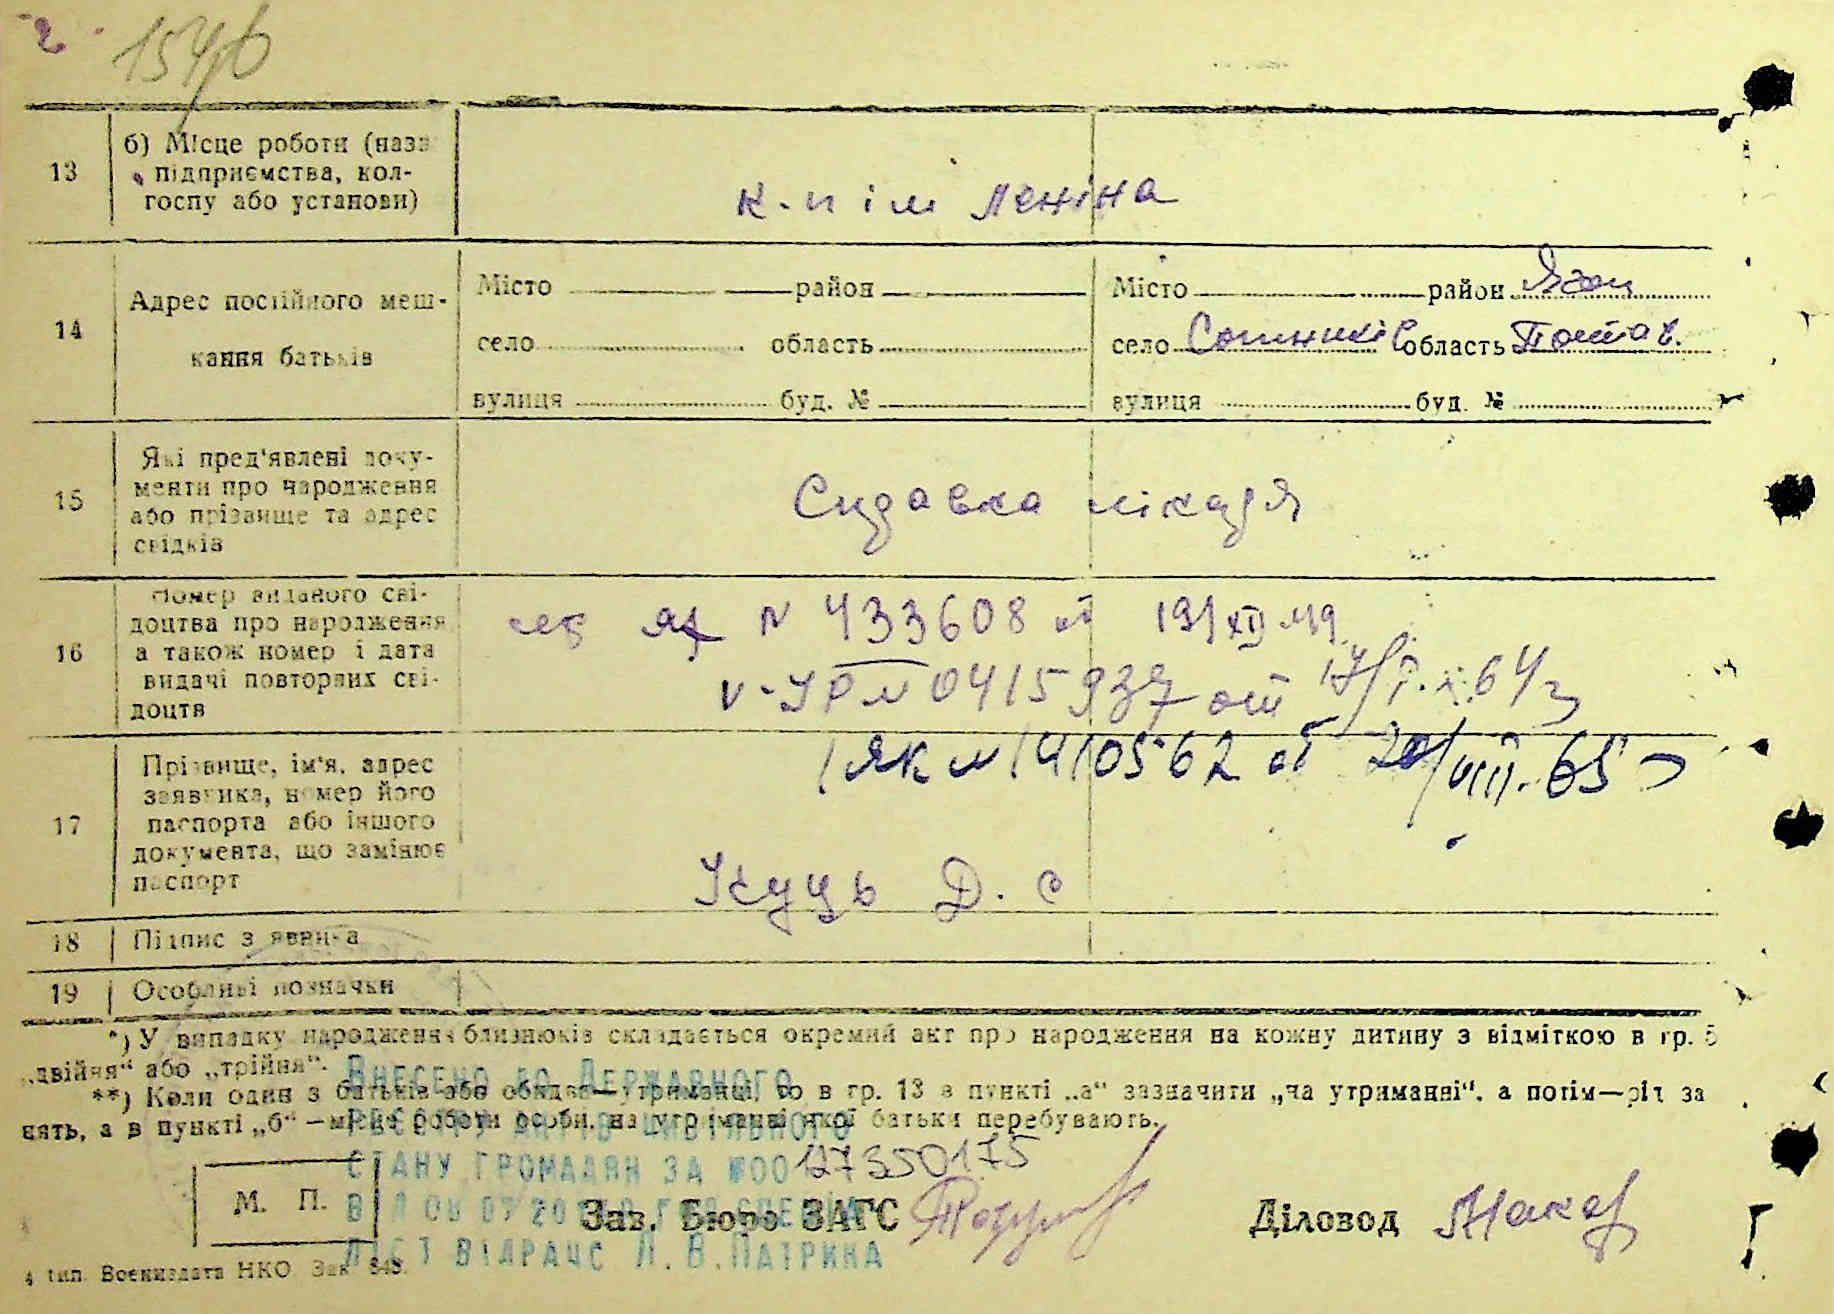 13
б) Місце роботи (назв
підприємства, кол-
госпу або установи)
к-п ім Леніна
14
Адрес постійного меш-
кання батьків
Місто район
село область
вулиця буд. №
Місто район
село область Полтав.
вулиця буд. №
15
Які пред'явлені доку-
менти про народження
або прізвище та адрес
свідків
Справка лікаря
16
Номер виданого сві-
доцтва про народження
а також номер і дата
видачі повторних сві-
доцтв
N 433608
0415937 от 64
ЯК N 1410562 от 20/VIII.65
17
Прізвище, ім'я, адрес
заявника, номер його
паспорта або іншого
документа, що замінює
паспорт
Куць Д. С
18
Підпис заявника
19
Особливі позначки
*) У випадку народження близнюків складається окремий акт про народження на кожну дитину з відміткою в гр. 5
„двійня“ або „трійня“.
**) Коли один з батьків або обидва—утриманці, то в гр. 13 в пункті „а“ зазначити „на утриманні“, а потім—рід за
нять, а в пункті „б“ —місце роботи особи, на утриманні якої батьки перебувають.
Внесено до Державного
реєстру актів цивільного
стану громадян за №00127350175
М. П.
Зав. Бюро ЗАГС
Діловод
ліст відрацс Л. В. Патрика
4 тип. Воениздата НКО Зак 848.